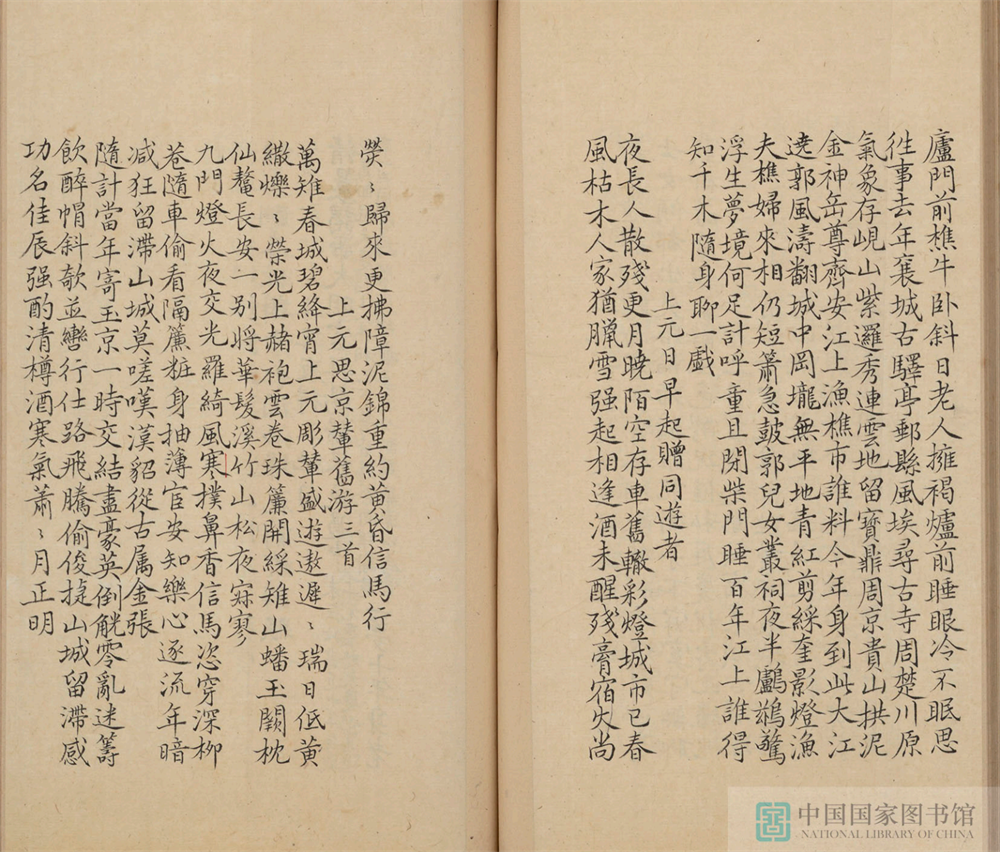 廬門前樵牛卧斜日老人擁褐爐前睡眼冷不眠思
徃事去年襄城古驛亭郵縣風埃尋古寺周楚川原
氣象存峴山紫邏秀連雲地留寶鼎周京貴山拱泥
金神岳尊齊安江上漁樵市誰料今年身到此大江
遶郭風濤翻城中岡壠無平地青紅剪綵奎影燈漁
夫樵婦來相仍短簫急鼓郭兒女叢祠夜半鸕鷀驚
浮生夢境何足計呼童且閉柴門睡百年江上誰得
知千木隨身聊一戲
上元日早起贈同遊者
夜長人散殘更月曉陌空存車舊轍彩燈城市已春
風枯木人家猶臘雪强起相逢酒未醒殘膏宿火尚
熒〻歸來更拂障泥錦重約黄昏信馬行
上元思京輦舊游三首
萬雉春城碧絳宵上元彫輦盛遊遨遲〻瑞日低黄
繖爍〻榮光上赭袍雲卷珠簾開綵雉山蟠玉闕枕
仙鼇長安一別將華髮溪竹山松夜寂寥
九門燈火夜交光羅綺風寒撲鼻香信馬恣穿深柳
巷隨車偷看隔簾粧身抽薄宦安知樂心逐流年暗
减狂留滯山城莫嗟嘆漢貂從古属金張
隨計當年寄玉京一時交結盡豪英倒觥零亂迷籌
飲醉帽斜欹並轡行仕路飛騰偷俊㨗山城留滯感
功名佳辰强酌清樽酒寒氣蕭〻月正明
中国国家图书馆
NATIONAL LIBRARY OF CHINA